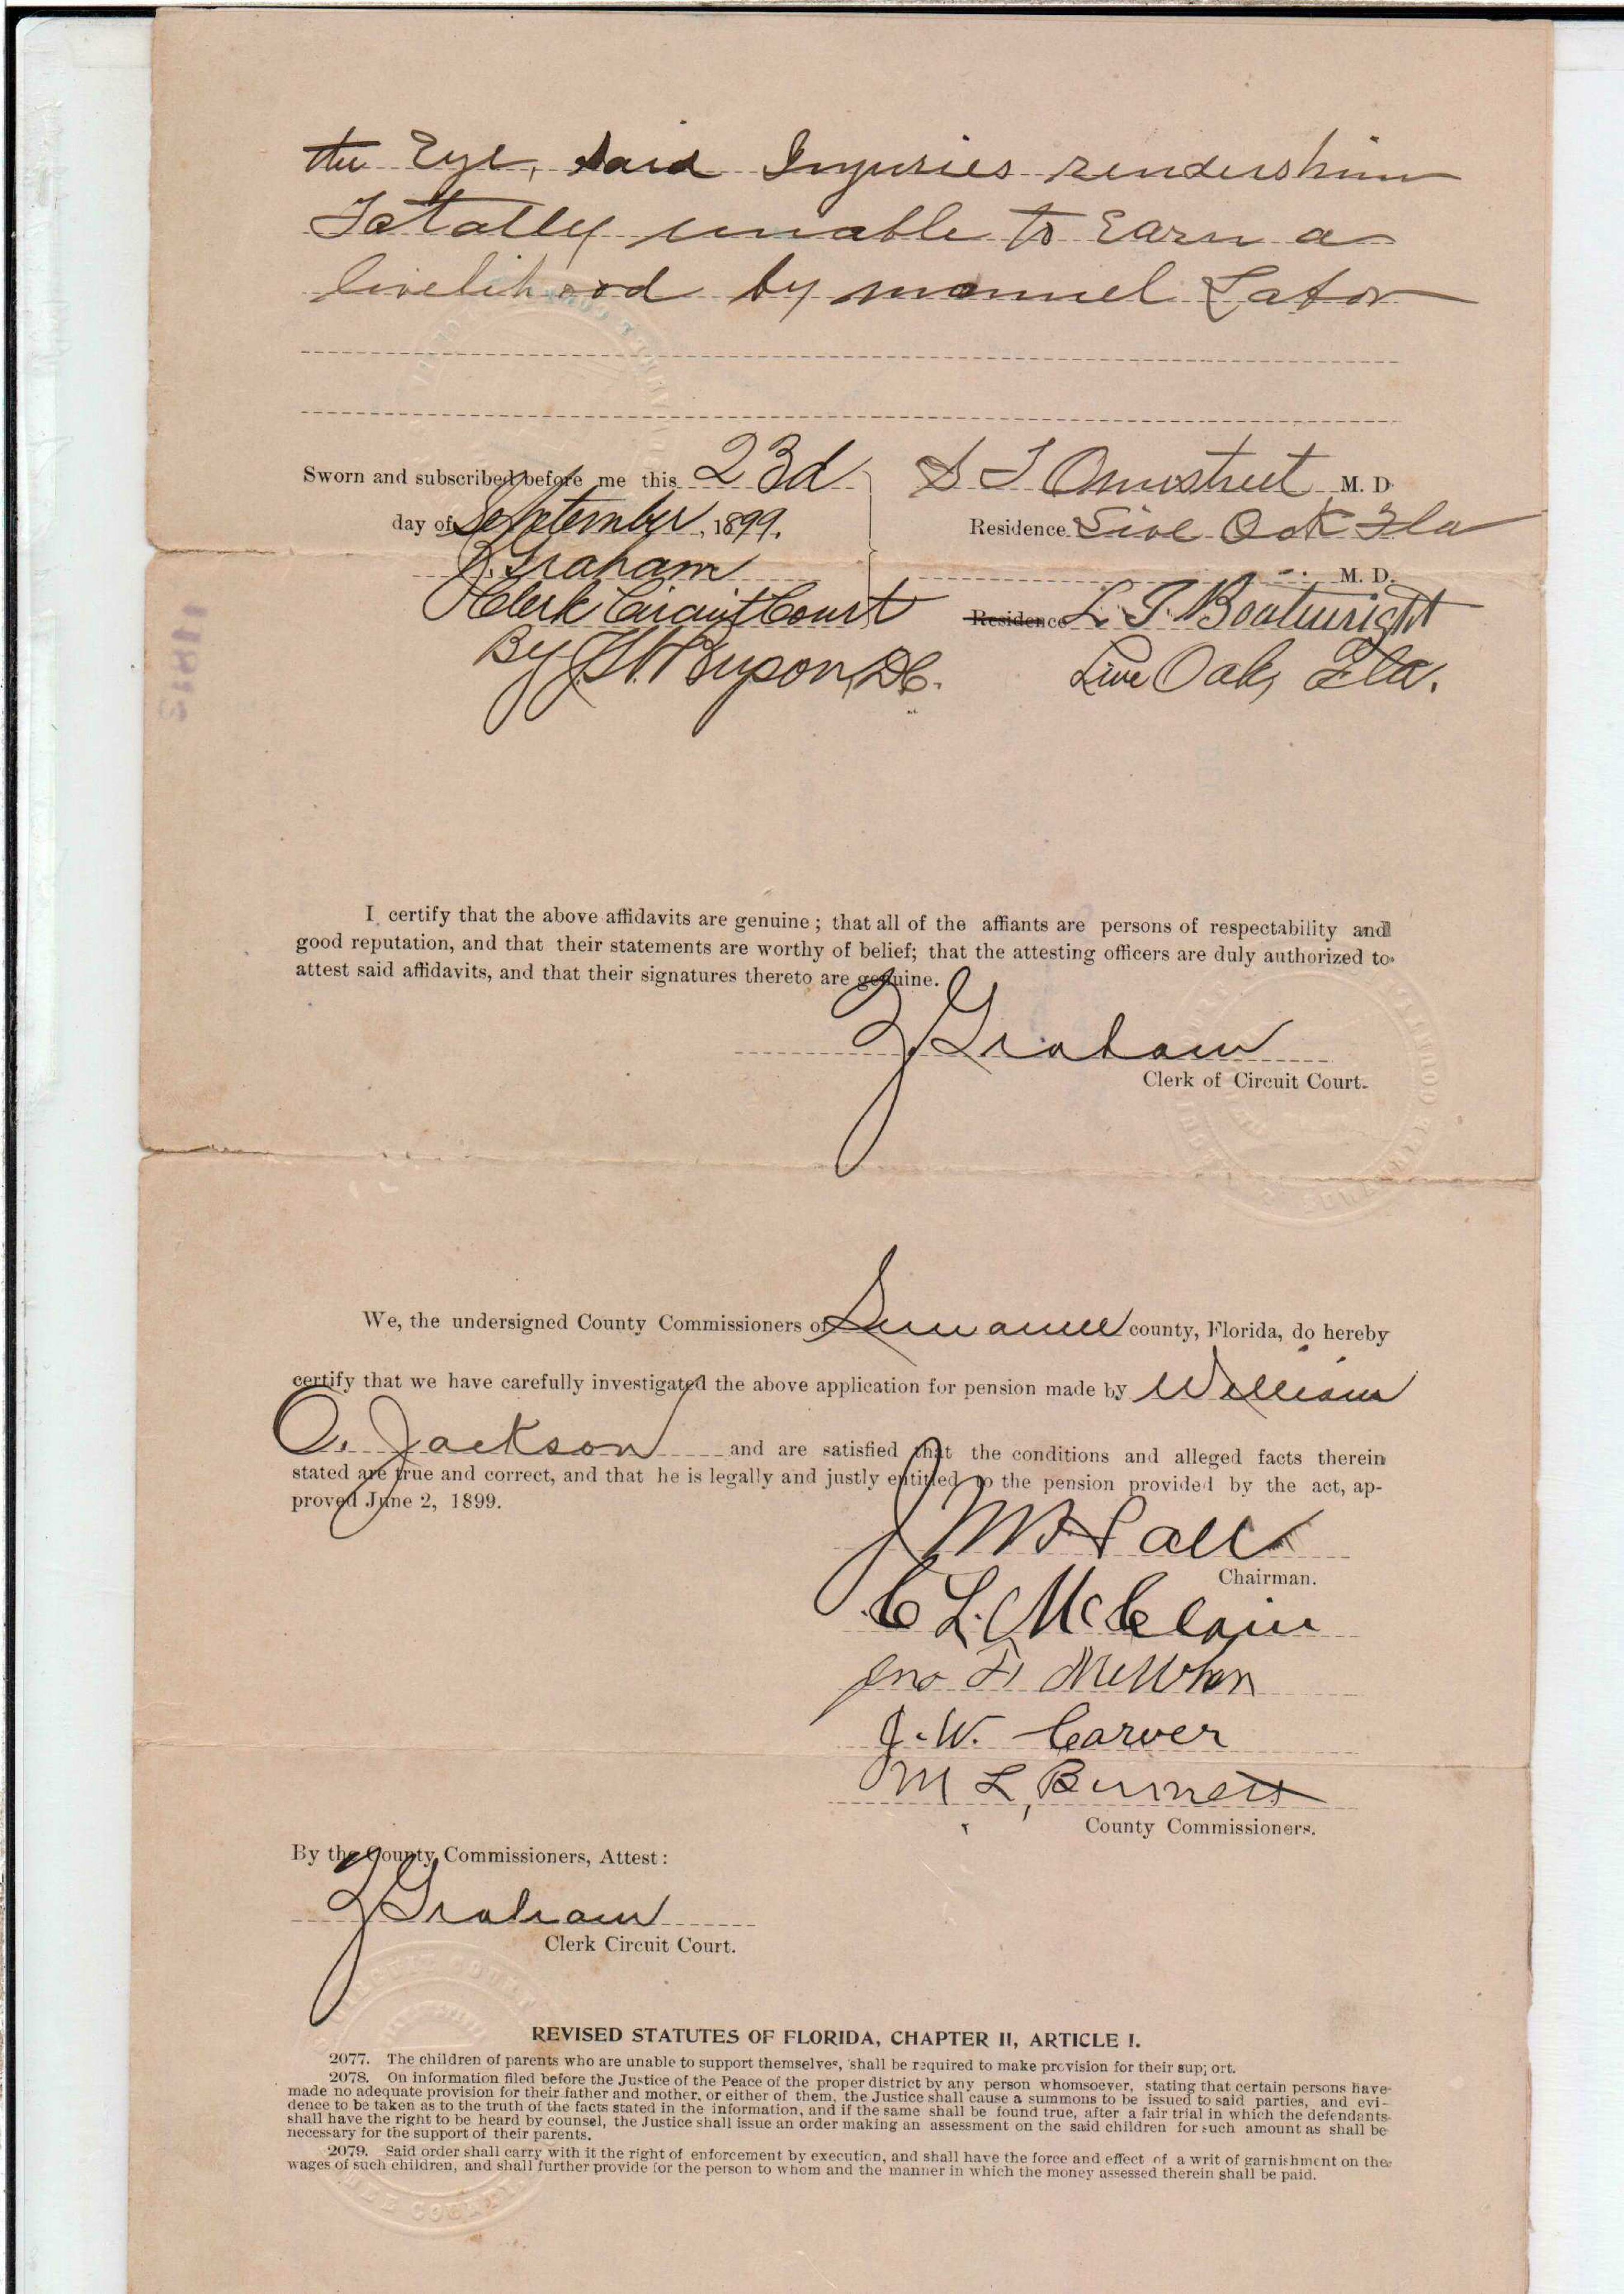 the Eye, Said Injuries renders him
Totally unable to Earn a
livelihood by manuel Labor
Sworn and subscribed before me this 23d
day of September, 1899.
Graham
Clerk Circuit Court
By Bryson, DC.
S T Overstreet M. D.
Residence Live Oak Fla
M. D.
Residence L. T. Boatwright
Live Oak, Fla.
I certify that the above affidavits are genuine; that all of the affiants are persons of respectability and
good reputation, and that their statements are worthy of belief; that the attesting officers are duly authorized to
attest said affidavits, and that their signatures thereto are genuine.
Graham
Clerk of Circuit Court.
We, the undersigned County Commissioners of Suwannee county, Florida, do hereby
certify that we have carefully investigated the above application for pension made by William
O. Jackson and are satisfied that the conditions and alleged facts therein
stated are true and correct, and that he is legally and justly entitled to the pension provided by the act, ap-
proved June 2, 1899.
J M Hall
Chairman.
C L. McClain
Jno F Newton
J. W. Carver
M L, Burnett
County Commissioners.
By the County Commissioners, Attest:
Graham
Clerk Circuit Court.
REVISED STATUTES OF FLORIDA, CHAPTER II, ARTICLE I.
2077. The children of parents who are unable to support themselves, shall be required to make provision for their sup, ort.
2078. On information filed before the Justice of the Peace of the proper district by any person whomsoever, stating that certain persons have
made no adequate provision for their father and mother, or either of them, the Justice shall cause a summons to be issued to said parties, and evi-
dence to be taken as to the truth of the facts stated in the information, and if the same shall be found true, after a fair trial in which the defendants
shall have the right to be heard by counsel, the Justice shall issue an order making an assessment on the said children for such amount as shall be
necessary for the support of their parents.
2079. Said order shall carry with it the right of enforcement by execution, and shall have the force and effect of a writ of garnishment on the
wages of such children, and shall further provide for the person to whom and the manner in which the money assessed therein shall be paid.